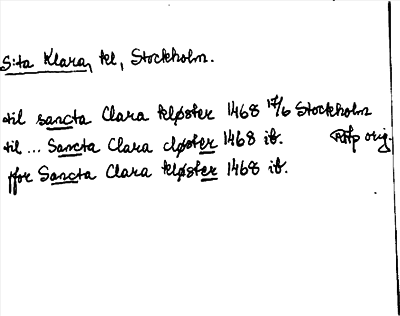 S:ta Klara, kl, Stockholm.
til sancta Clara kloster 1468 17/6 Stockholm
til ... Sancta Clara closter 1468 ib. RAp orig.
ffor Sancta Clara kloster 1468 ib.